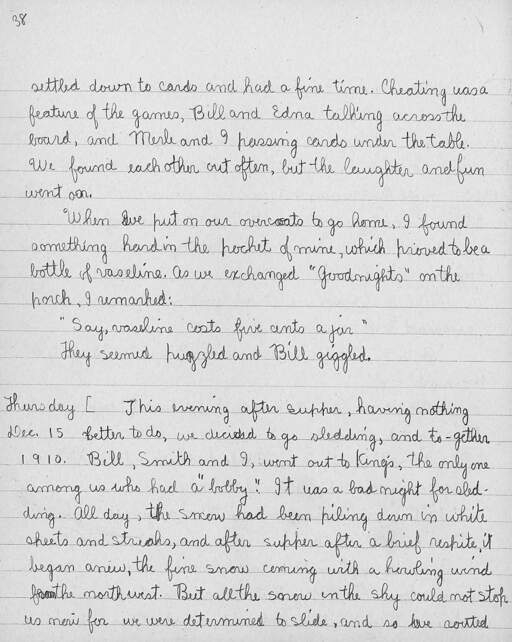 38
settled down to cards and had a fine time. Cheating was a
feature of the games, Bill and Edna talking across the
board, and Merle and I passing cards under the table.
We found each other out often, but the laughter and fun
went on.
"When we put on our overcoats to go home, I found
something hard in the pocket of mine, which proved to be a
bottle of vaseline. As we exchanged "Goodnights" on the
porch, I remarked:
"Say, vaseline costs five cents a jar"
They seemed puzzled and Bill giggled.
Thursday [ This evening after supper, having nothing
Dec. 15 better to do, we decided to go sledding, and to-gether
1910. Bill, Smith and I, went out to King's, the only one
among us who had a "bobby". It was a bad night for sled-
ding. All day, the snow had been piling down in white
sheets and streaks, and after supper after a brief respite, it
began anew, the fine snow coming with a howling wind
from the northwest. But all the snow in the sky could not stop
us now for we were determined to slide, and so we routed